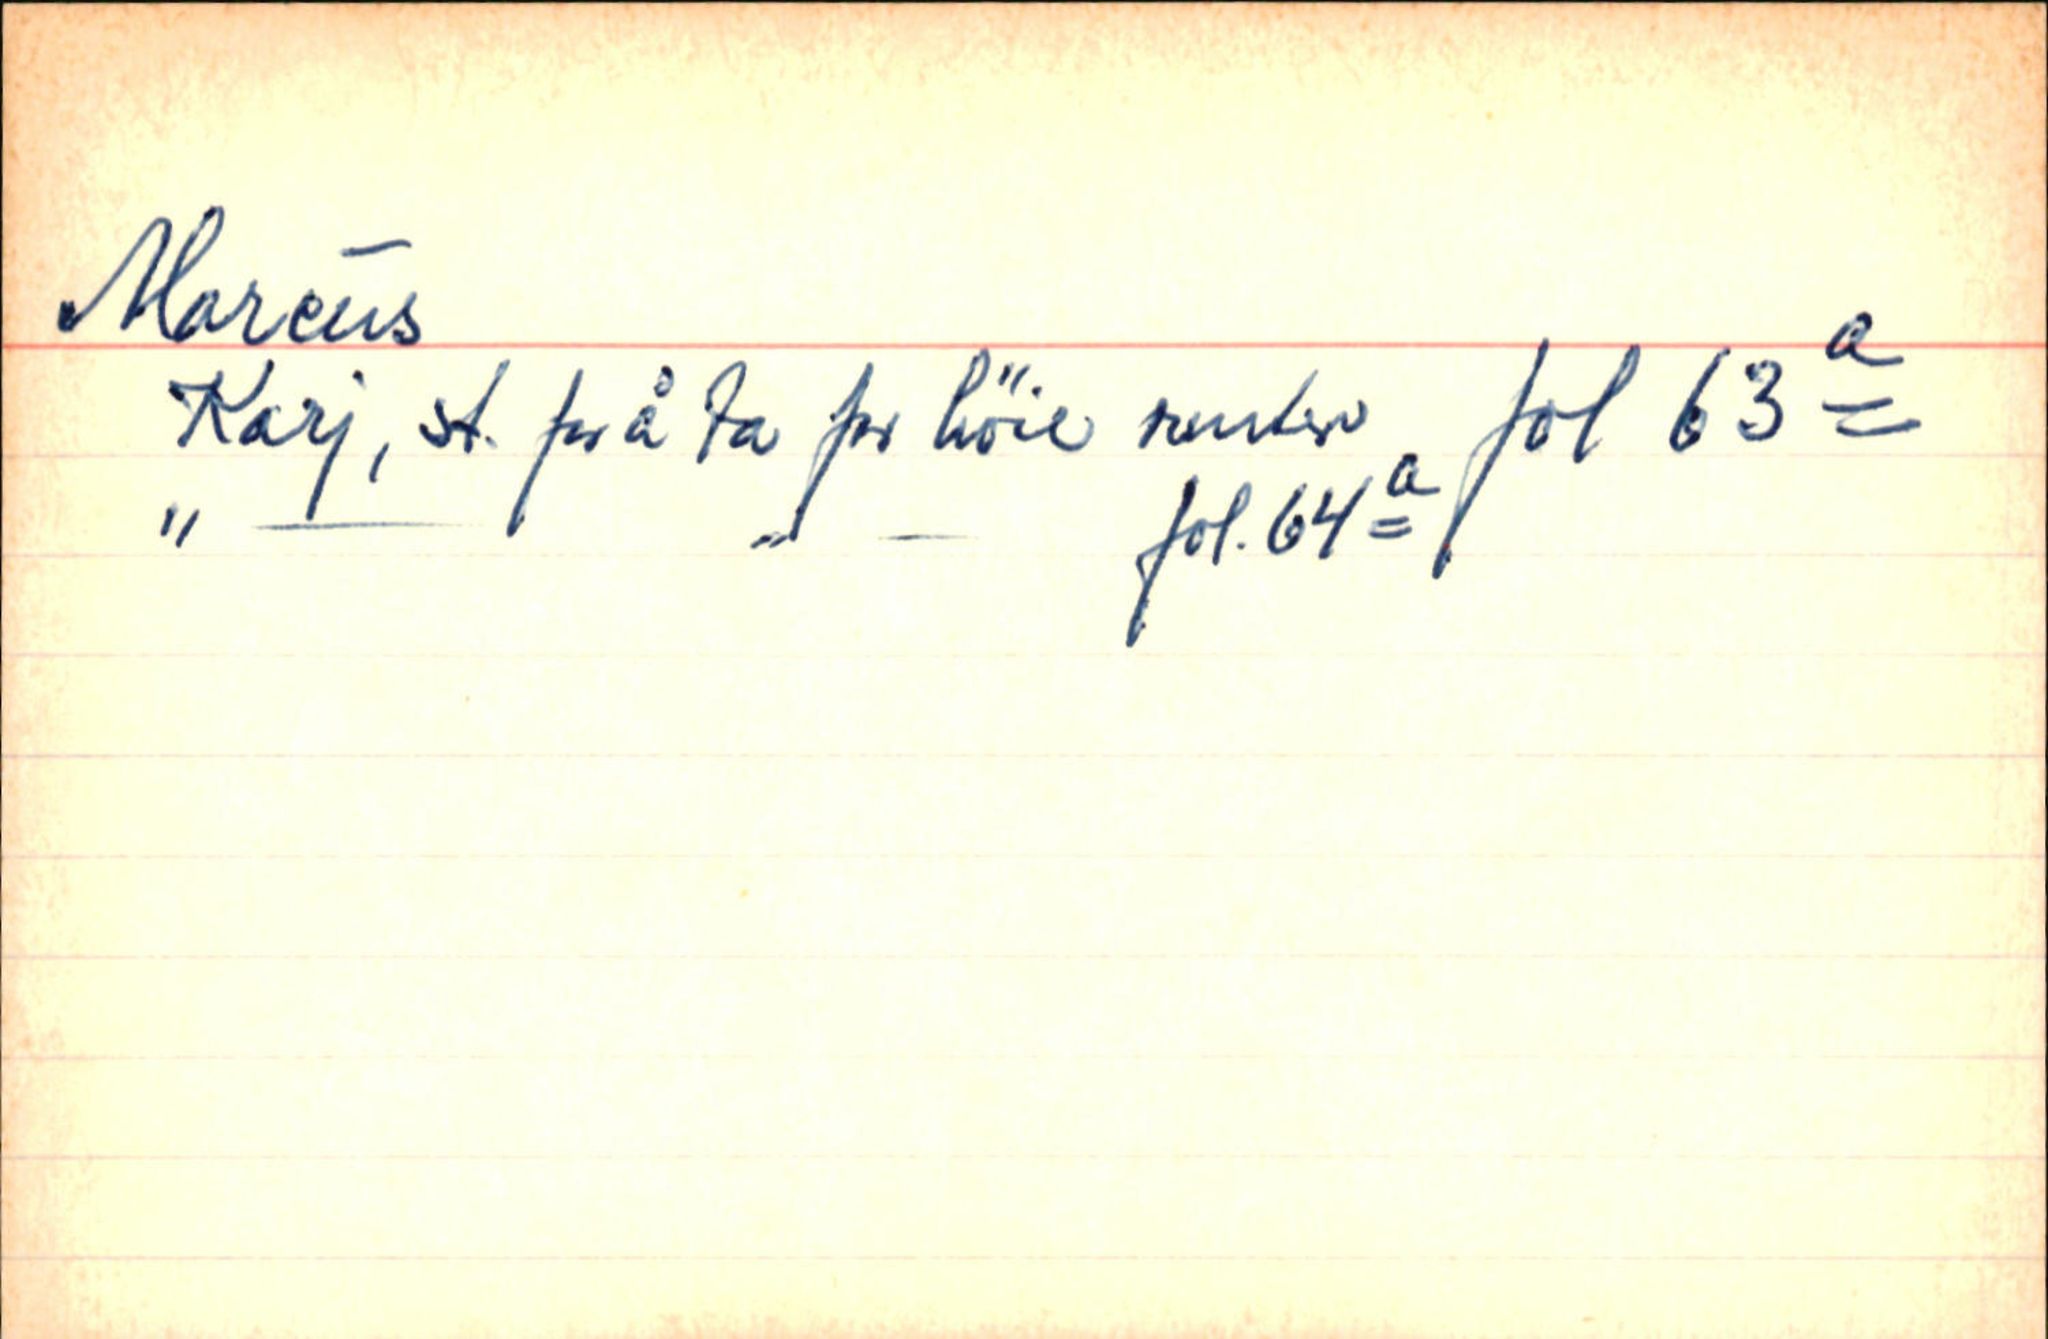 Marcus
Karj, st. for å ta for höie renter fol 63a
" — " — fol. 64a